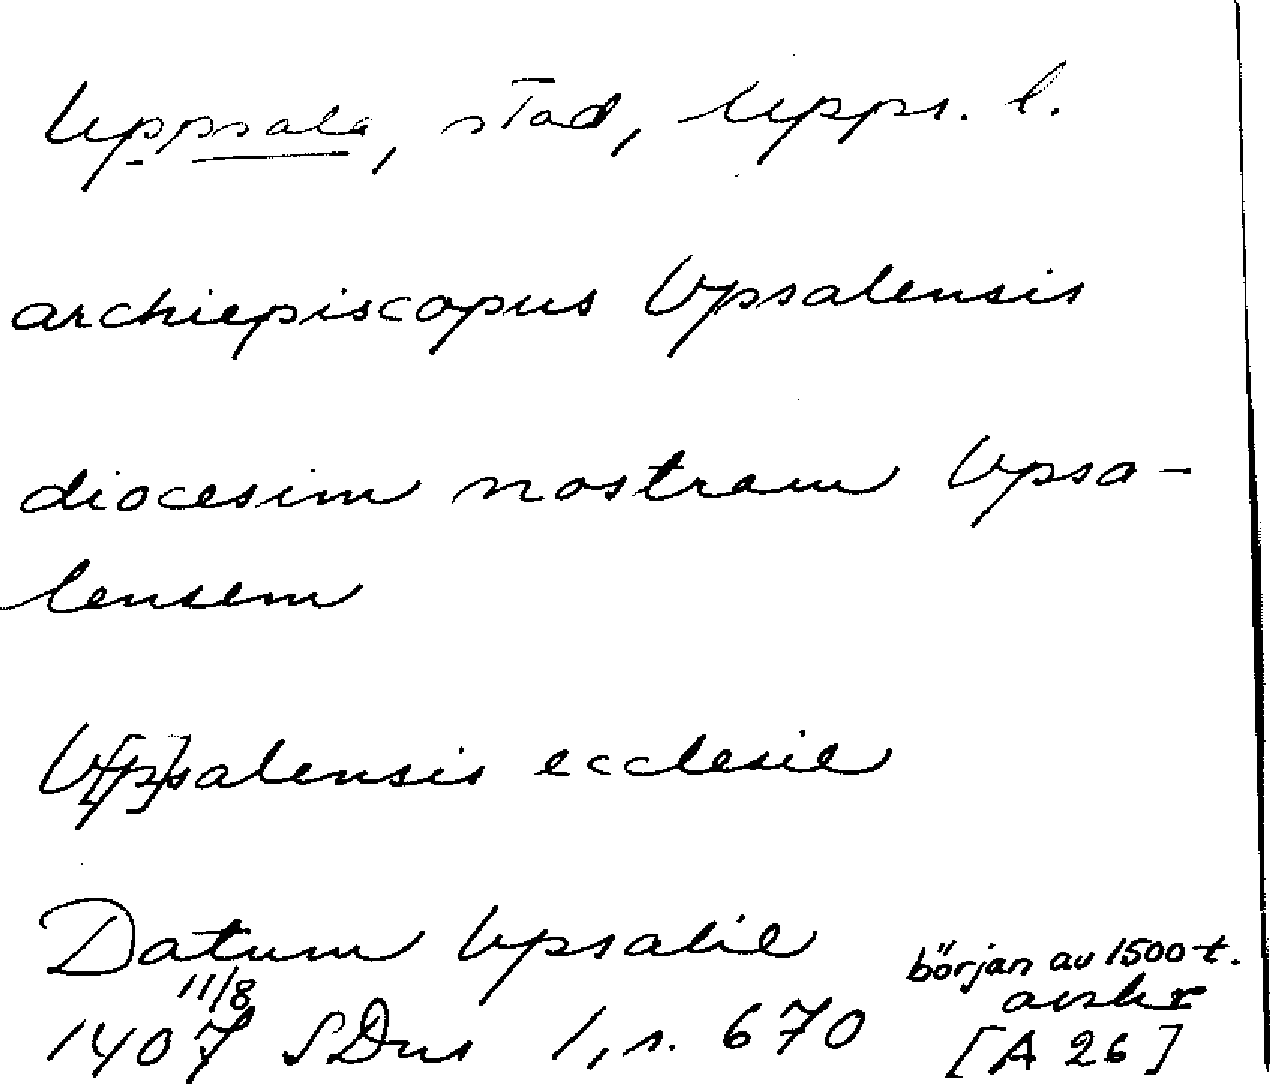 Uppsala, stad, Upps. l.
archiepiscopus Vpsalensis
diocesim nostram Vpsa-
lensem
V[p]salensis ecclesie
Datum Vpsalie
11/8
1407 SDns 1, s. 670
början av 1500-t.
avskr
[A 26]